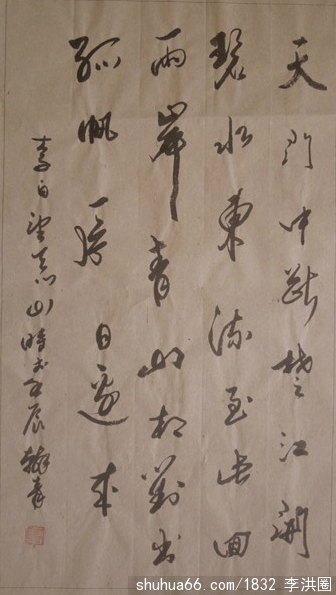 天门中断楚江開
碧水東流至此回
两岸青山相對出
孤帆一片日邊来
李白望天门山時壬辰
shuhua66.com/1832 李洪圈